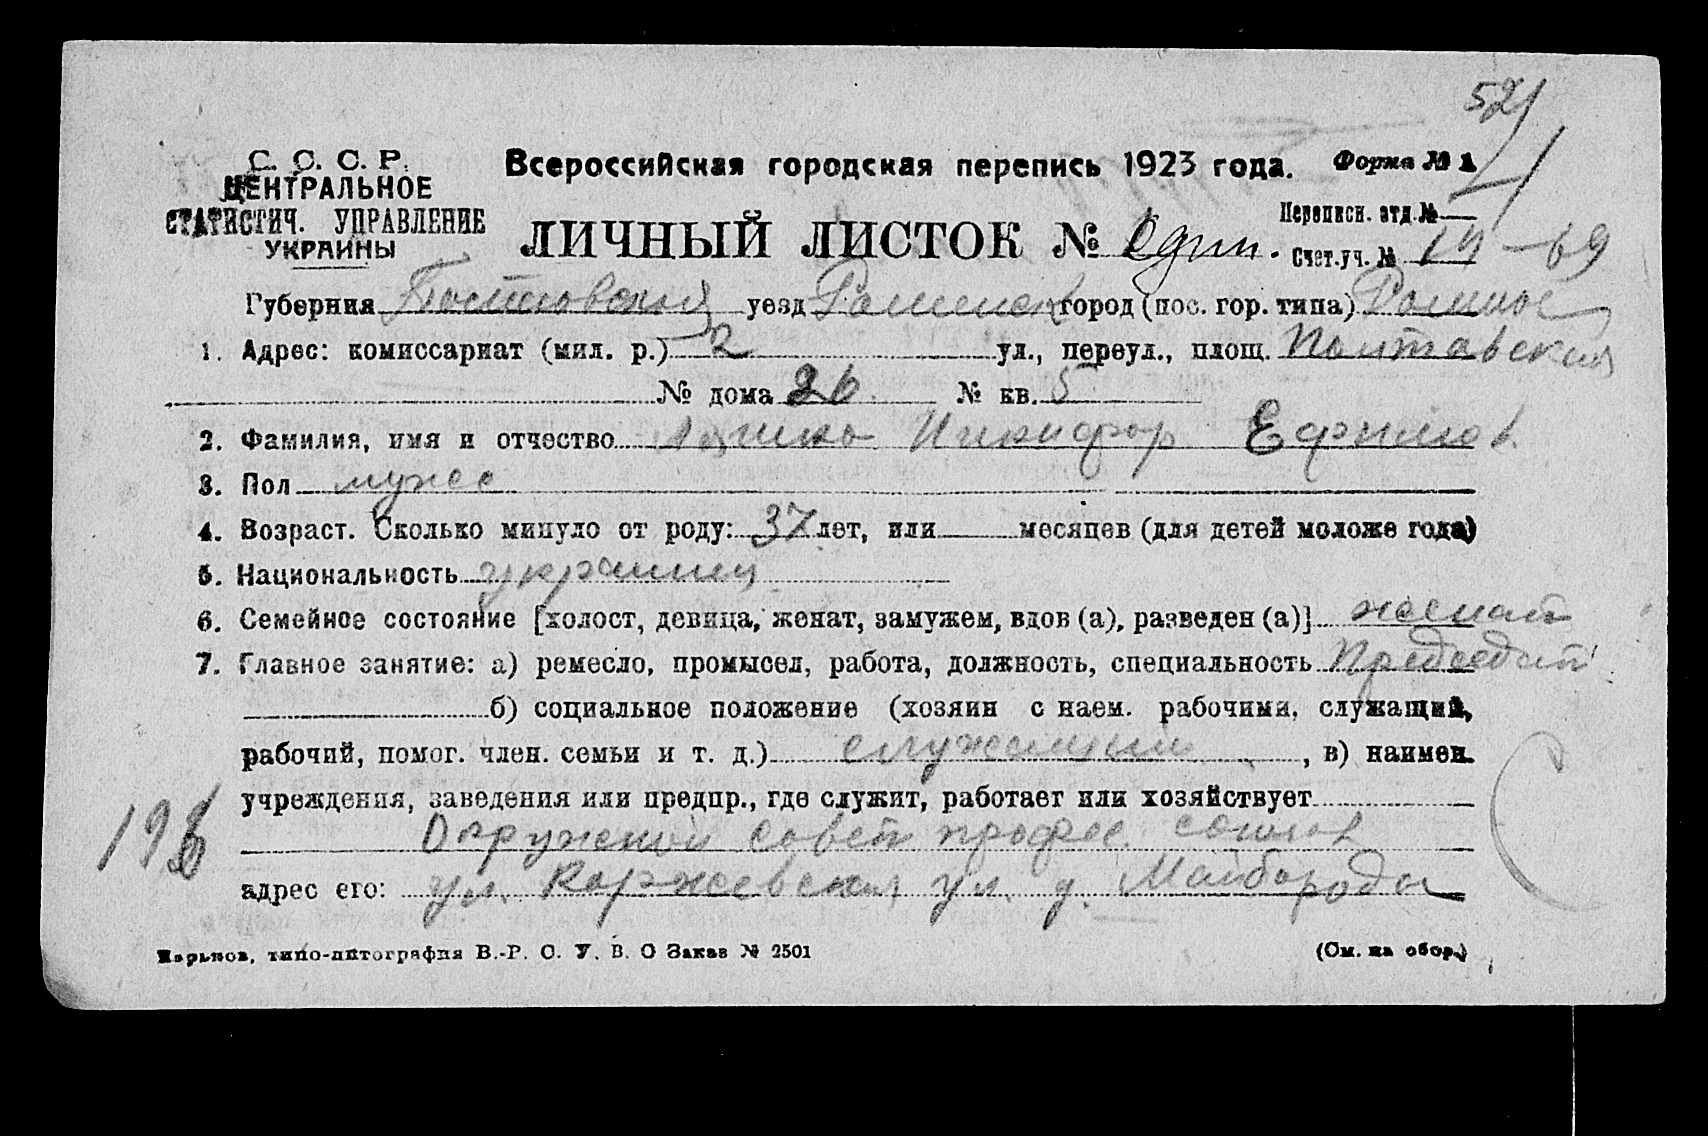 52/
С. С. С. Р.
ЦЕНТРАЛЬНОЕ
СТАТИСТИЧ. УПРАВЛЕНИЕ
УКРАИНЫ
Всероссийская городская перепись 1923 года. Форма № 1
Переписн. отд. №
ЛИЧНЫЙ ЛИСТОК № Один.
Счет.уч. № 69
Губерния Полтовская уезд Роменск город (пос. гор. типа) Ромны
1. Адрес: комиссариат (мил. р.) 2 ул., переул., площ. Полтавская
№ дома 26 № кв. 5
2. Фамилия, имя и отчество Никифор Ефимов
3. Пол мужс
4. Возраст. Сколько минуло от роду: 37 лет, или месяцев (для детей моложе года)
5. Национальность украинец
6. Семейное состояние [холост, девица, женат, замужем, вдов (а), разведен (а)] женат
7. Главное занятие: а) ремесло, промысел, работа, должность, специальность Председат
б) социальное положение (хозяин с наем. рабочими, служащий,
рабочий, помог. член. семьи и т. д.) служащий, в) наимен.
учреждения, заведения или предпр., где служит, работает или хозяйствует
Окружной совет профес. союзов
198
адрес его: ул. Коржевская ул. д. Майбороды
Харьков, типо-литография В.-Р. С. У. В. О Заказ № 2501
(См. на обор.)